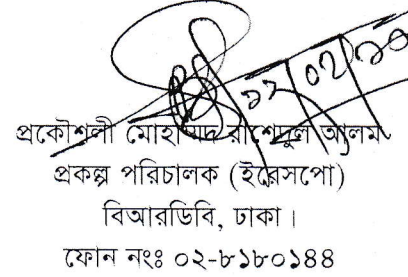 ১২/০২/১৩
প্রকৌশলী মোহাম্মদ রাশেদুল আলম
প্রকল্প পরিচালক (ইরেসপো)
বিআরডিবি, ঢাকা।
ফোন নংঃ ০২-৮১৮০১৪৪